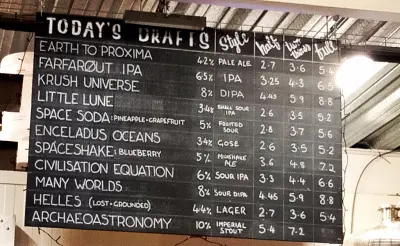 TODAY'S DRAFTS Style half Two Thirds full
EARTH TO PROXIMA 4.2% PALE ALE 2.7 3.6 5.4
FARFARØUT IPA 6.5% IPA 3.25 4.3 6.5
KRUSH UNIVERSE 8% DIPA 4.45 5.9 8.8
LITTLE LUNE 3.4% SMALL SOUR IPA 2.6 3.5 5.2
SPACE SODA: PINEAPPLE+GRAPEFRUIT 5% FRUITED SOUR 2.8 3.7 5.6
ENCELADUS OCEANS 3.4% GOSE 2.6 3.5 5.2
SPACESHAKE: BLUEBERRY 5% MILKSHAKE ALE 3.6 4.8 7.2
CIVILISATION EQUATION 6% SOUR IPA 3.3 4.4 6.6
MANY WORLDS 8% SOUR DIPA 4.45 5.9 8.8
HELLES (LOST+GROUNDED) 4.4% LAGER 2.7 3.6 5.4
ARCHAEOASTRONOMY 10% IMPERIAL STOUT 5.4 7.2